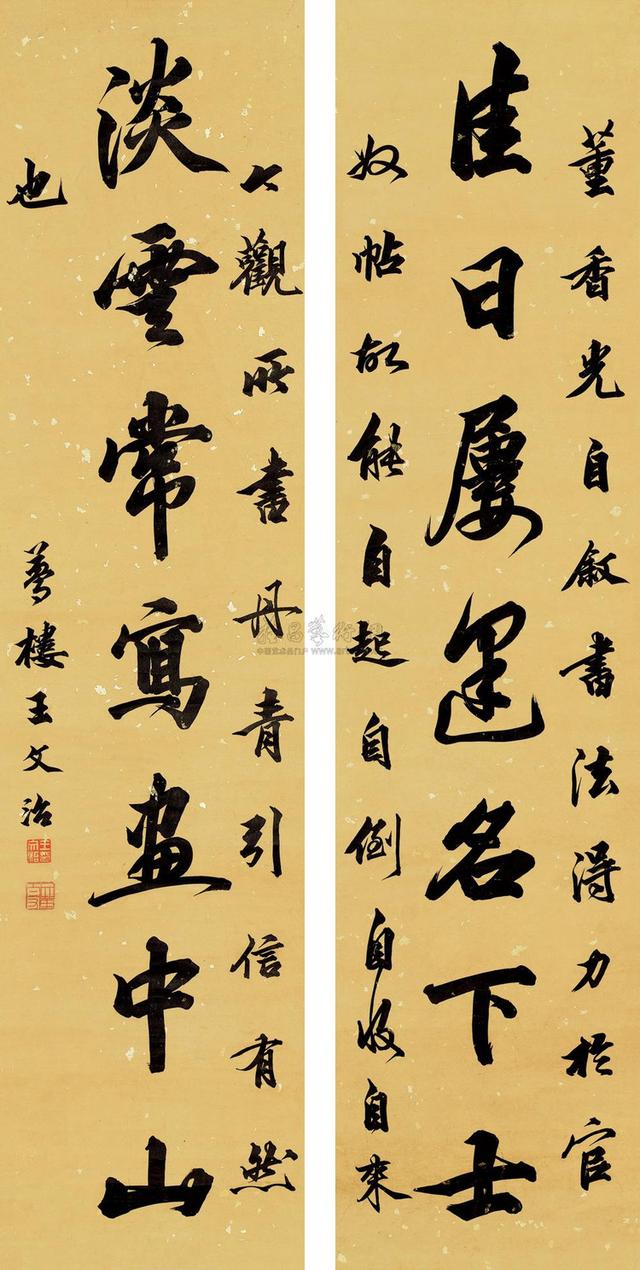 董香光自叙書法得力於官
佳日屢逢名下士
奴帖故能自起自倒自收自束
今觀所書丹青引信有然
淡雲常寫畫中山
也
夢樓王文治